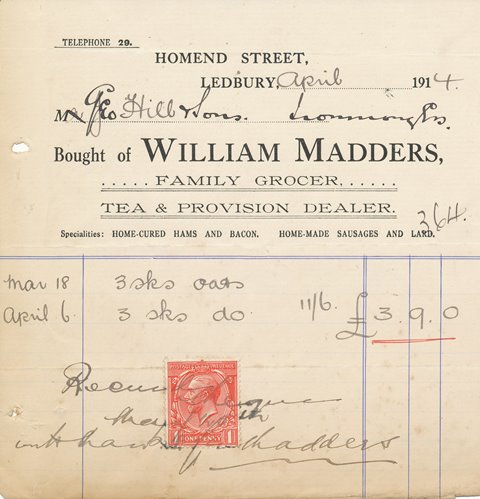 TELEPHONE 29.
HOMEND STREET,
LEDBURY, April 1914.
M Geo Hill & Sons. Ironmongers.
Bought of WILLIAM MADDERS,
..... FAMILY GROCER, ......
TEA & PROVISION DEALER.
364.
Specialities: HOME-CURED HAMS AND BACON. HOME-MADE SAUSAGES AND LARD.
Mar 18 3 sks oats
April 6 3 sks do 11/6. £3.9.0
POSTAGE REVENUE
ONE PENNY 1
with thanks Madders